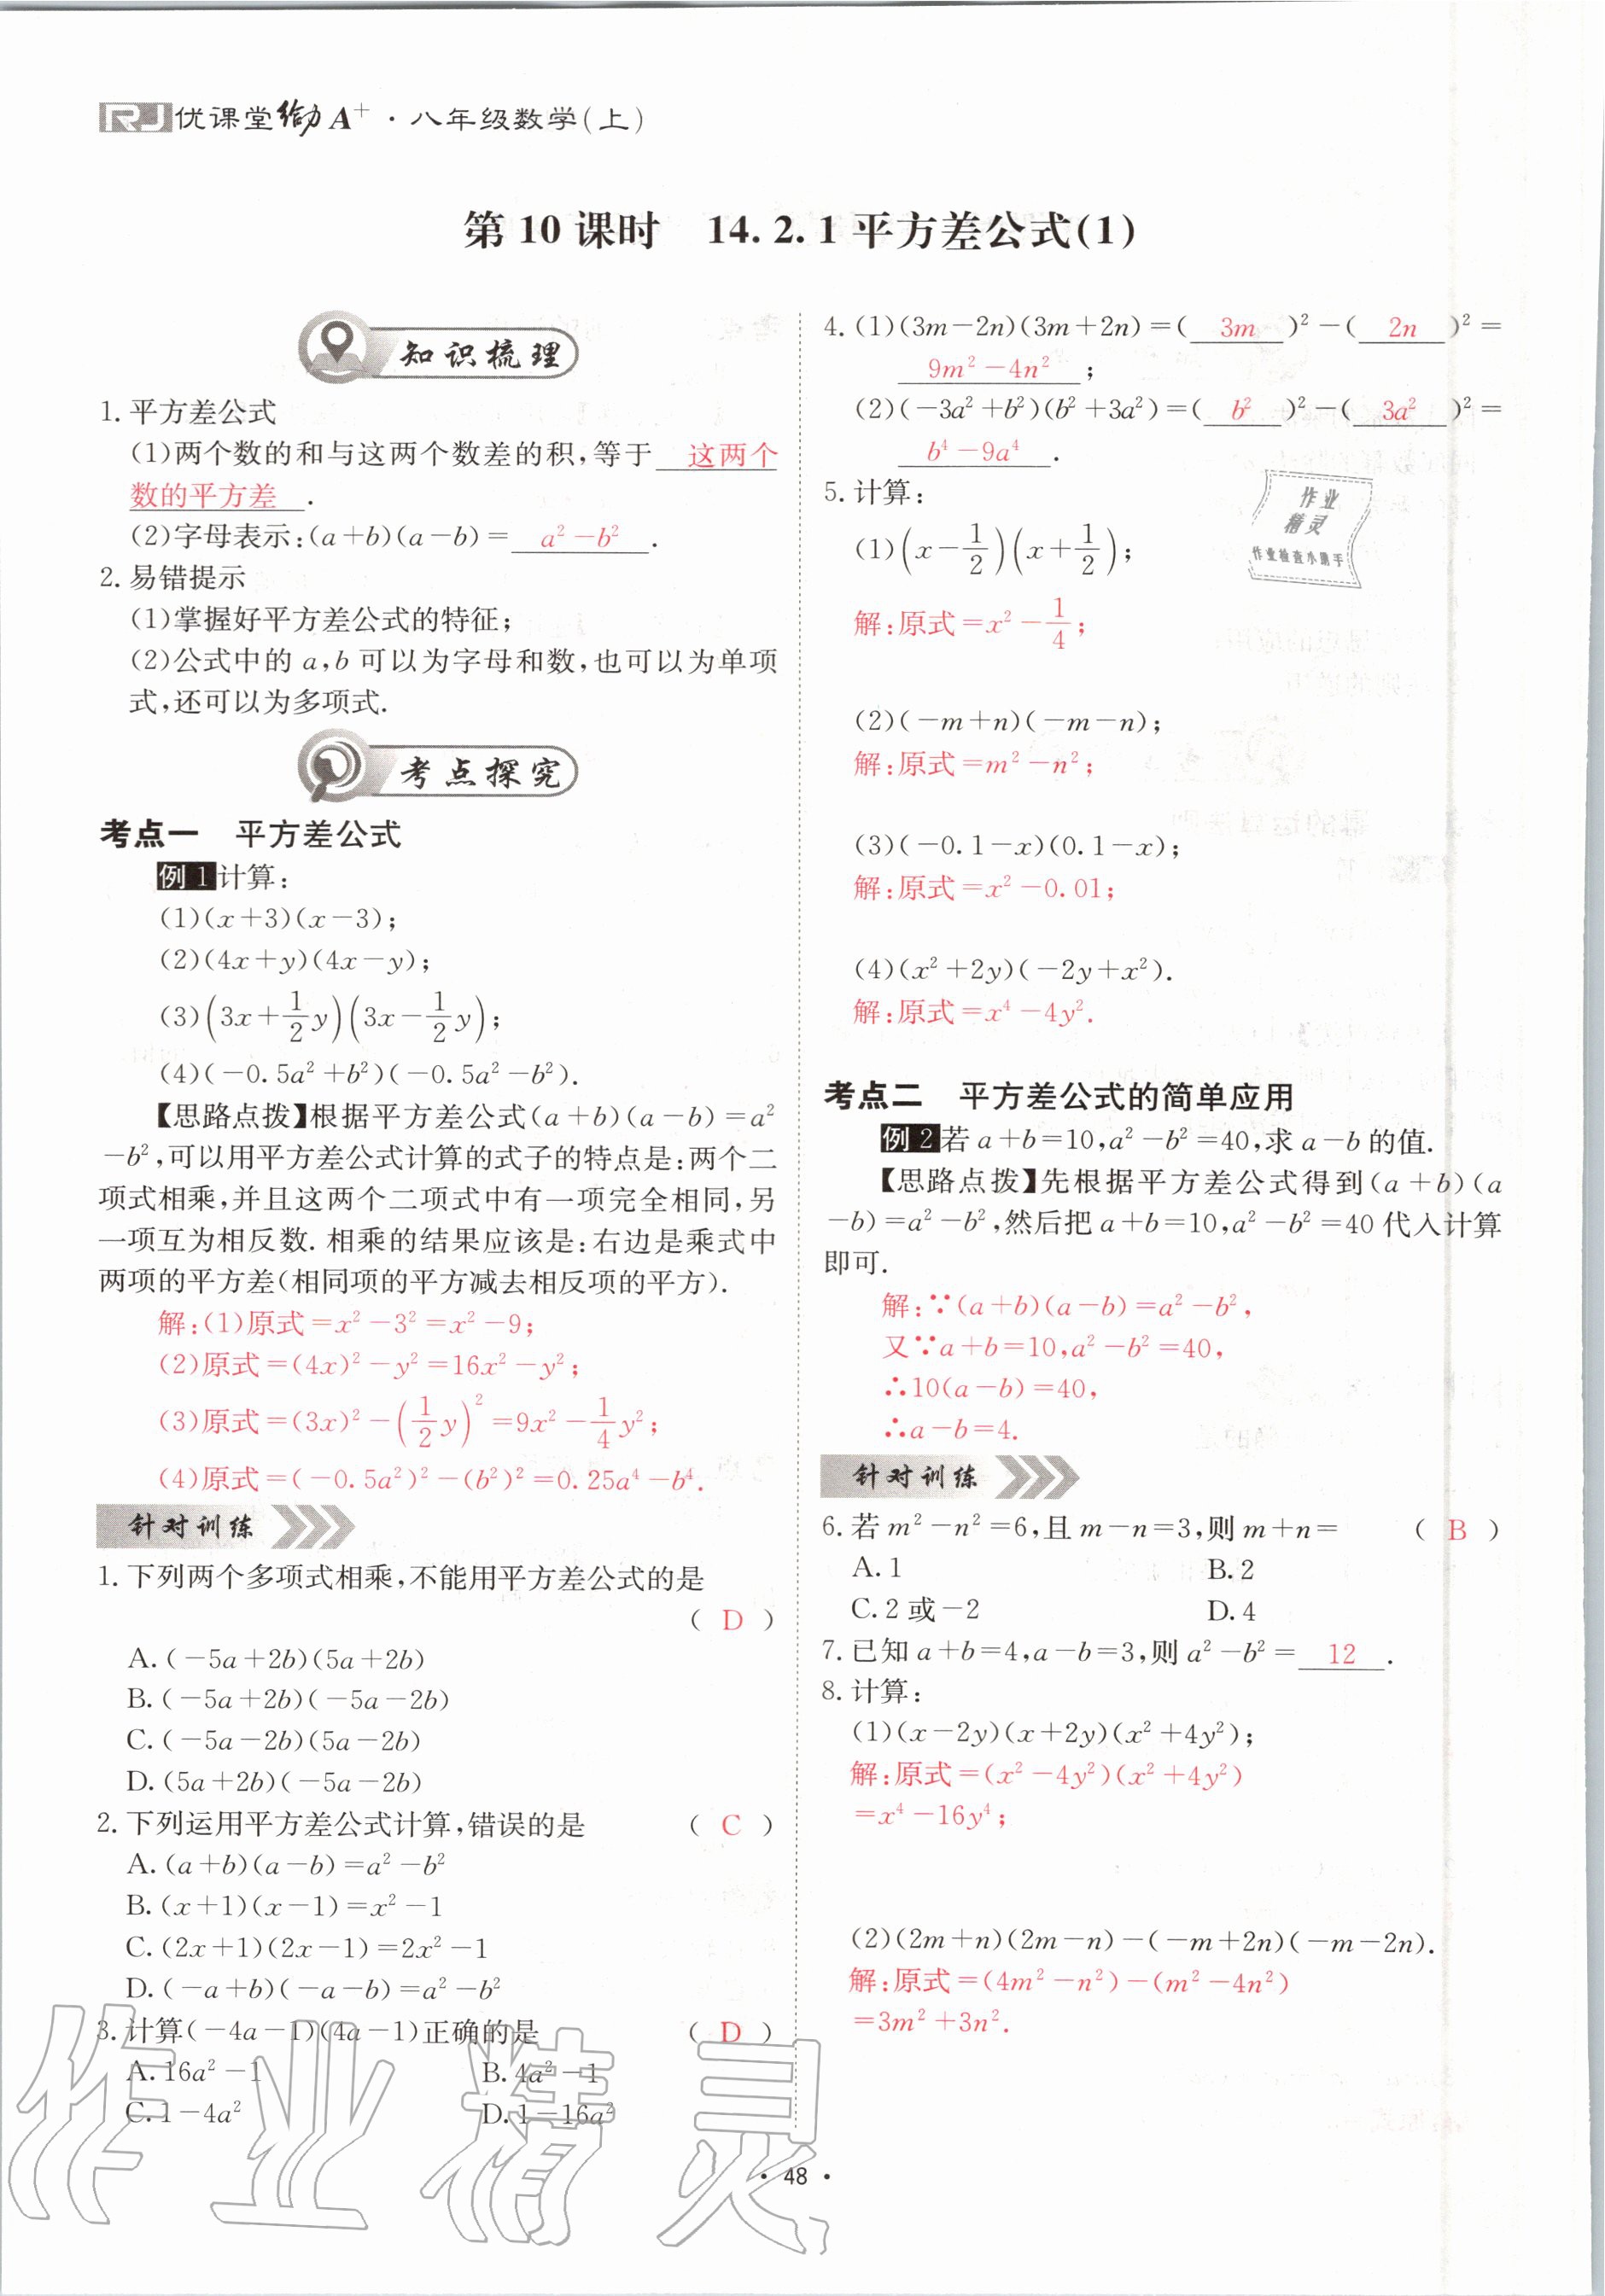 RJ 优课堂给力A⁺·八年级数学(上)
第10课时 14.2.1平方差公式(1)
知识梳理
1.平方差公式
(1)两个数的和与这两个数差的积,等于 这两个
数的平方差 .
(2)字母表示:(a+b)(a-b)= a²-b² .
2.易错提示
(1)掌握好平方差公式的特征;
(2)公式中的a,b可以为字母和数,也可以为单项
式,还可以为多项式.
考点探究
考点一 平方差公式
例1 计算:
(1)(x+3)(x-3);
(2)(4x+y)(4x-y);
(3)(3x+1/2 y)(3x-1/2 y);
(4)(-0.5a²+b²)(-0.5a²-b²).
【思路点拨】根据平方差公式(a+b)(a-b)=a²
-b²,可以用平方差公式计算的式子的特点是:两个二
项式相乘,并且这两个二项式中有一项完全相同,另
一项互为相反数.相乘的结果应该是:右边是乘式中
两项的平方差(相同项的平方减去相反项的平方).
解:(1)原式=x²-3²=x²-9;
(2)原式=(4x)²-y²=16x²-y²;
(3)原式=(3x)²-(1/2 y)²=9x²-1/4 y²;
(4)原式=(-0.5a²)²-(b²)²=0.25a⁴-b⁴.
针对训练
1.下列两个多项式相乘,不能用平方差公式的是
( D )
A.(-5a+2b)(5a+2b)
B.(-5a+2b)(-5a-2b)
C.(-5a-2b)(5a-2b)
D.(5a+2b)(-5a-2b)
2.下列运用平方差公式计算,错误的是 ( C )
A.(a+b)(a-b)=a²-b²
B.(x+1)(x-1)=x²-1
C.(2x+1)(2x-1)=2x²-1
D.(-a+b)(-a-b)=a²-b²
3.计算(-4a-1)(4a-1)正确的是 ( D )
A.16a²-1 B.4a²-1
C.1-4a² D.1-16a²
4.(1)(3m-2n)(3m+2n)=( 3m )²-( 2n )²=
9m²-4n² ;
(2)(-3a²+b²)(b²+3a²)=( b² )²-( 3a² )²=
b⁴-9a⁴ .
5.计算:
(1)(x-1/2)(x+1/2);
解:原式=x²-1/4;
(2)(-m+n)(-m-n);
解:原式=m²-n²;
(3)(-0.1-x)(0.1-x);
解:原式=x²-0.01;
(4)(x²+2y)(-2y+x²).
解:原式=x⁴-4y².
考点二 平方差公式的简单应用
例2 若a+b=10,a²-b²=40,求a-b的值.
【思路点拨】先根据平方差公式得到(a+b)(a
-b)=a²-b²,然后把a+b=10,a²-b²=40代入计算
即可.
解:∵(a+b)(a-b)=a²-b²,
又∵a+b=10,a²-b²=40,
∴10(a-b)=40,
∴a-b=4.
针对训练
6.若m²-n²=6,且m-n=3,则m+n= ( B )
A.1 B.2
C.2或-2 D.4
7.已知a+b=4,a-b=3,则a²-b²= 12 .
8.计算:
(1)(x-2y)(x+2y)(x²+4y²);
解:原式=(x²-4y²)(x²+4y²)
=x⁴-16y⁴;
(2)(2m+n)(2m-n)-(-m+2n)(-m-2n).
解:原式=(4m²-n²)-(m²-4n²)
=3m²+3n².
作业
精灵
作业检查小助手
作业精灵
·48·